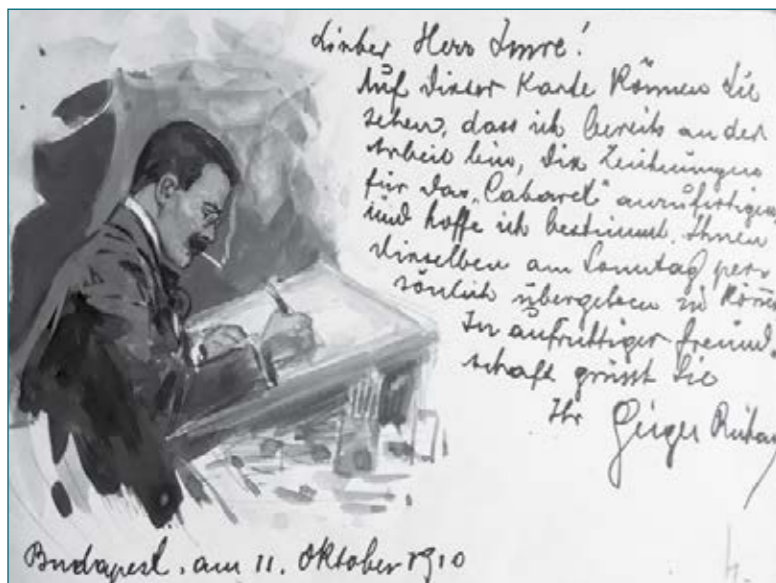 Lieber Herr Imre!
Auf dieser Karte können Sie
sehen, dass ich bereits an der
Arbeit bin, die Zeichnungen
für das „Cabaret" anzufertigen
und hoffe ich bestimmt, Ihnen
dieselben am Sonntag per
sönlich übergeben zu könn
In aufrichtiger Freund
schaft grüsst Sie
Ihr Geiger Richar
Budapest, am 11. Oktober 1910